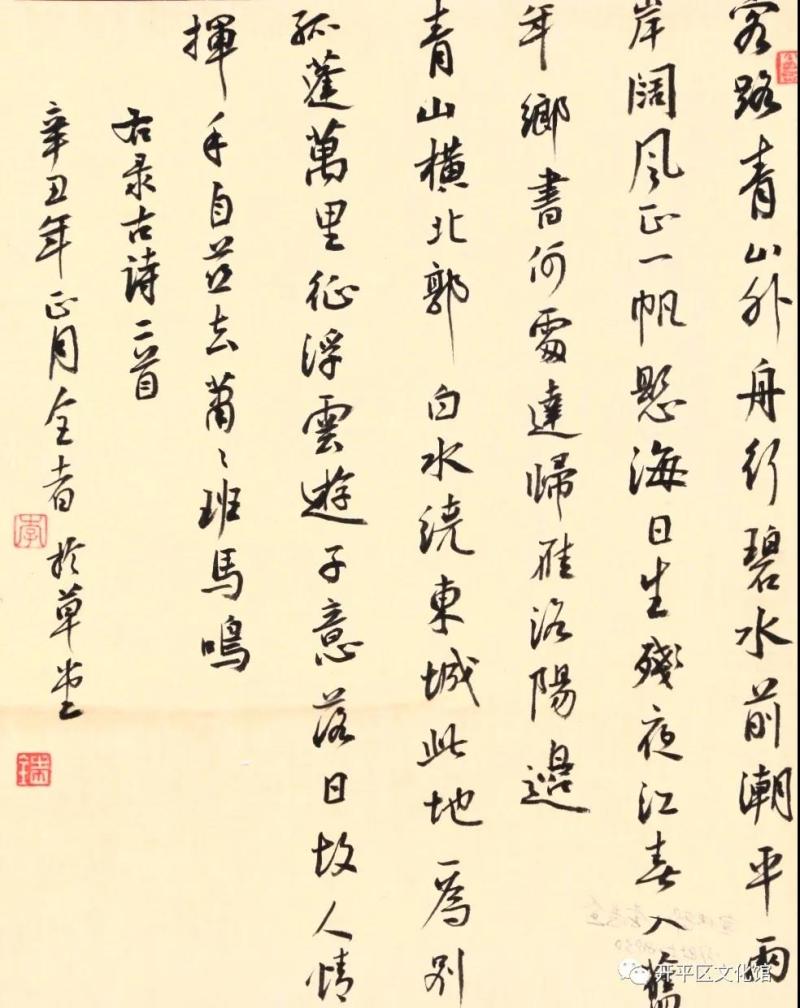 客路青山外舟行碧水前潮平兩
岸阔风正一帆懸海日生殘夜江春入舊
年鄉書何處達歸雁洛陽邊
青山橫北郭白水繞東城此地一為别
孤蓬萬里征浮雲遊子意落日故人情
揮手自茲去蕭〻班馬鳴
右录古詩二首
辛丑年正月全者於草堂
李
开平区文化馆